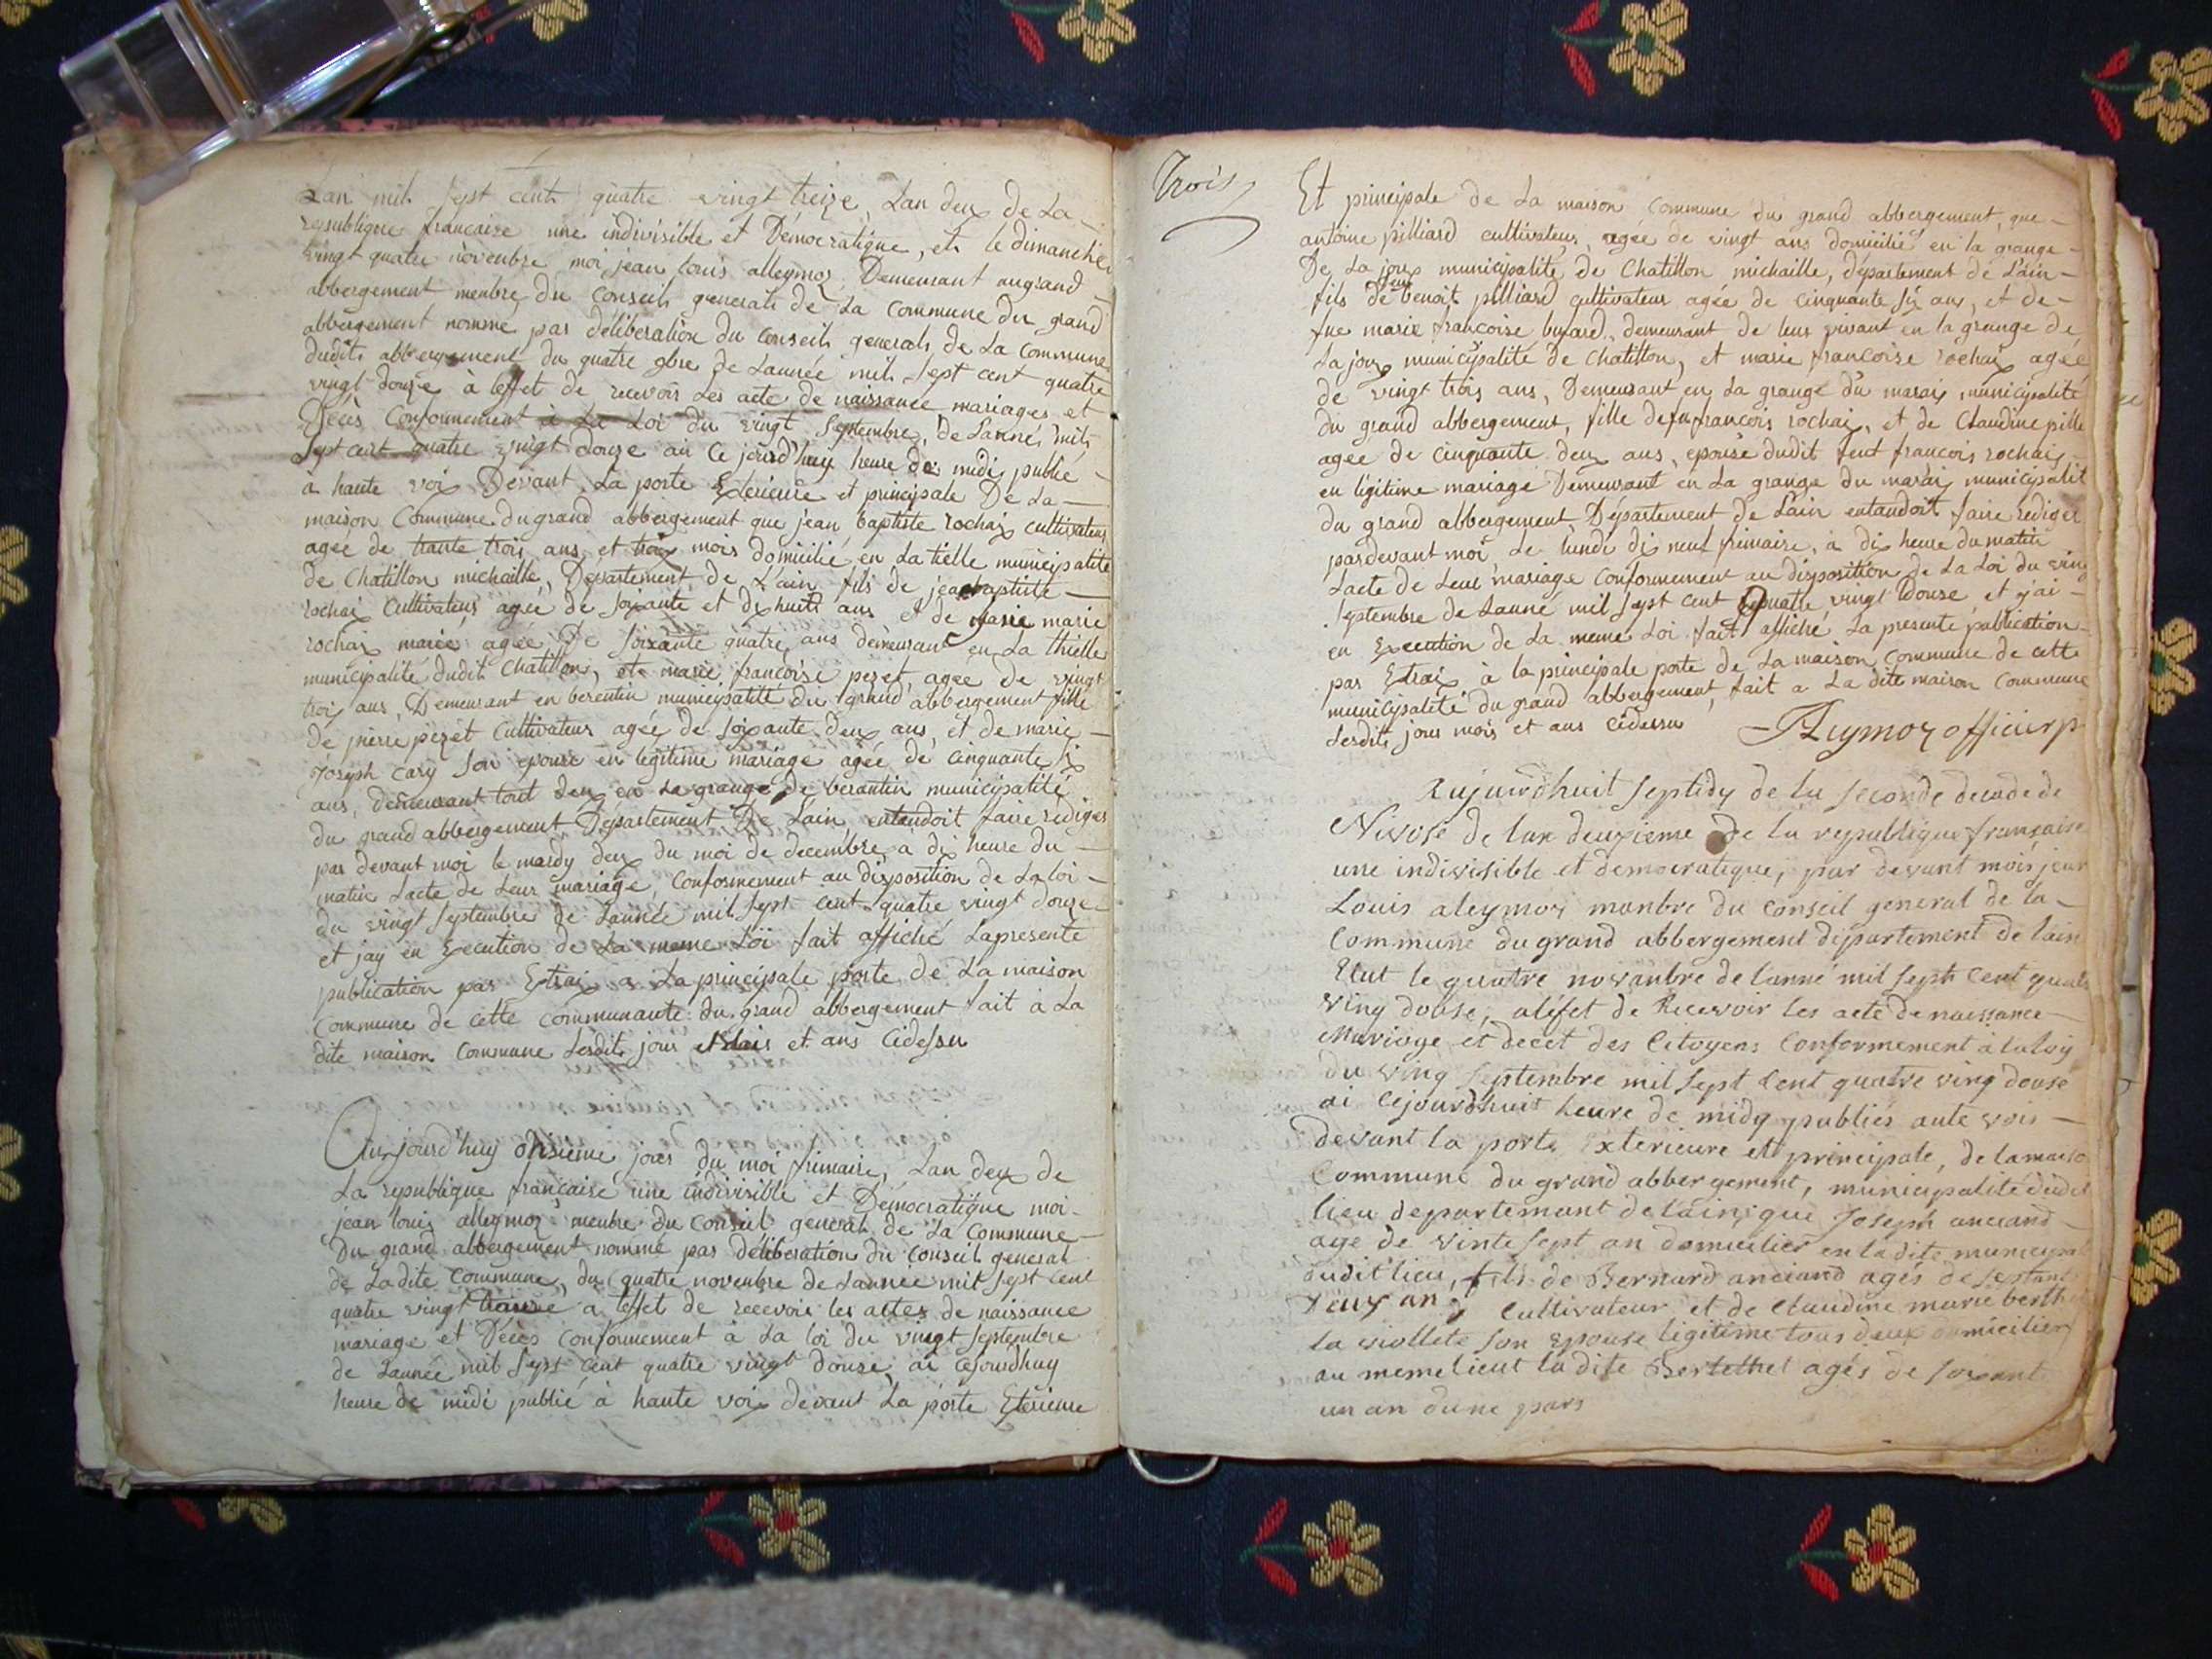 Lan mil sept cent quatre vingt treize, Lan deux de La
republique francaise une indivisible et Démocratique, et le dimanche
vingt quatre novenbre moi jean louis alleymoz Demeurant augrand
abbergement menbre du Conseils generals de La Commune du grand
abbergement nommé par déliberation du Conseils generals de La Commune
dudits abbergement du quatre 9bre de Lannée mil sept cent quatre
vingt douze à leffet de recevoir Les acte de naissance mariages et
Décès Conformement à La Loi du vingt Septembre, de Lannée mil
Sept cent quatre vingt douze ai ce jourd'huy heure de midi publié
a haute voix Devant La porte Exterieure et principale De La
maison Commune du grand abbergement que jean baptiste rochaix cultivateur
agée de trante trois ans et trois mois domicilié en La tielle municipalité
de Chatillon michaille, Département de L'ain fils de jean baptiste
rochaix Cultivateur agée de soixante et dix huits ans et de marie
rochaix mariée agée De soixante quatre ans demeurant en La thielle
municipalité dudit Chatillon, et marie francoise pezet, agee de vingt
trois ans, Demeurant en berentin municipalité du grand abbergement fille
de pierre pezet cultivateur agée de soixante deux ans, et de marie
Joseph cary son epouse en légitime mariage agée de cinquante six
ans, demeurant tout deux en La grange de berantin municipalité
du grand abbergement Département De Lain, entendoit faire rediger
par devant moi le mardy deux du moi de decembre a dix heure du
matin Lacte de Leur mariage, Conformement au disposition de La loi
du vingt Septembre de Lannée mil Sept cent quatre vingt douze
et jay en Execution de La meme Loi fait affiché Lapresente
publication par Extrai a La principale porte de La maison
Commune de cette communaute du grand abbergement fait à La
dite maison Commune Lesdits jour et mois et ans Cidessu
Aujourd'huy onsieme jours du moi frimaire, Lan deux de
La republique francaise une indivisible et Démocratique moi
jean louis alleymoz menbre du Conseil general de La Commune
Du grand abbergement nommé par déliberation du Conseil general
de Ladite Commune, du quatre novenbre de Lannée mil sept cent
quatre vingt a leffet de recevoir les actes de naissance
mariage et Décès Conformement à La loi du vingt septembre
de Lannée mil sept cent quatre vingt douse ai cejourdhuy
heure de midi publié à haute voix devant La porte Exterieure
Trois
Et principale de La maison Commune du grand abbergement, que
antoine pilliard cultivateur, agée de vingt ans domicilié en la grange
De La joux municipalité de Chatillon michaille, département de Lain
fils de benoit pilliard cultivateur agée de cinquante six ans, et de
fue marie francoise bufard, demeurant de leur vivant en la grange de
La joux municipalité de Chatillon, et marie francoise rochaix agée
de vingt trois ans, Demeurant en La grange du marais municipalité
du grand abbergement, fille defu francois rochaix, et de Claudine pille
agée de cinquante deux ans, epouse dudit feut francois rochaix
en légitime mariage Demeurant en La grange du marais municipalit
du grand abbergement Département de Lain entandoit faire rediger
pardevant moi Le lundi dix neuf frimaire, à dix heure du matin
Lacte de Leur mariage Conformement au disposition de La Loi du ving
Septembre de Lanné mil sept cent quatre vingt douse et j'ai
en Execution de La meme Loi fait affiché La presente publication
par Extrai à la principale porte de La maison Commune de cette
municipalité du grand abbergement, fait a La dite maison Commune
Lesdits jour mois et ans Cidessu Aleymoz officier p
Aujourdhuit septidy de la seconde decade de
Nivose de lan deuxieme de la republique française
une indivisible et democratique, par devant mois jean
Louis aleymoz manbre du Conseil general de la
Commune du grand abbergement département de lain
Elut le quatre novanbre de lanné mil sept cent quatr
ving douse, aléfet de Recevoir les acte de naissance
Mariage et decet des Citoyens Conformement à laloy
du ving septembre mil sept cent quatre ving douse
ai Cejourdhuit heure de midy publies aute vois
devant la porte Exterieure et principale, de lamaiso
Commune du grand abbergement, municipalité dudit
lieu departemant de lain, que Joseph anciand
age de vinte sept an domicilier en ladite municipal
dudit lieu, fils de Bernard anciand agés de septant
Deux an, Cultivateur et de Claudine marie berthe
la viollete son Epouse legitime tous deux domicilier
au meme lieut la dite Berlethet agés de soixant
un an dune pars